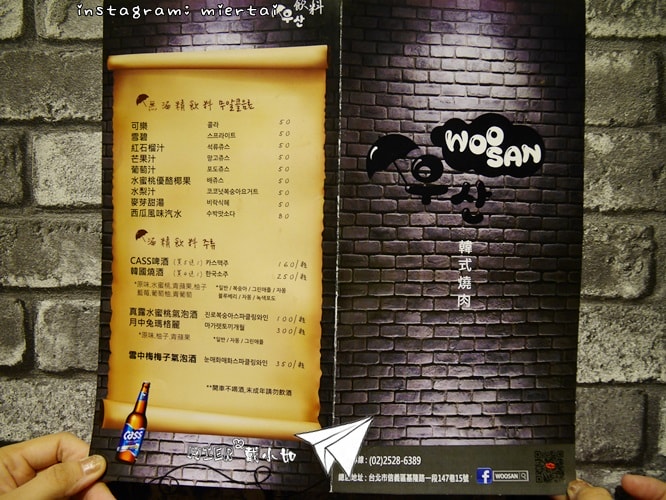 instagram: miertai
우산 飲料
無酒精飲料 무알콜음료
可樂 콜라 50
雪碧 스프라이트 50
紅石榴汁 석류쥬스 50
芒果汁 망고쥬스 50
葡萄汁 포도쥬스 50
水蜜桃優酪椰果 50
水梨汁 배쥬스 50
코코넛복숭아요거트
麥芽甜湯 바락식혜 50
西瓜風味汽水 수박맛소다 80
酒精飲料 주류
CASS啤酒 (買5送1) 카스맥주 160/瓶
韓國燒酒 한국소주 250/瓶
*原味,水蜜桃,青蘋果,柚子 *일반 / 복숭아 / 그린애플 / 자몽
藍莓,葡萄柚,青葡萄 블루베리 / 자몽 / 녹색포도
真露水蜜桃氣泡酒 진로복숭아스파클링와인 100/瓶
月中兔瑪格麗 마가렛토끼개월 300/瓶
*原味,柚子,青蘋果 *일반 / 자몽 / 그린애플
雪中梅梅子氣泡酒 눈매화매화스파클링와인 350/瓶
**開車不喝酒,未成年請勿飲酒
cass
MIER 戴小如
WOO SAN
우산
韓式燒肉
線 : (02)2528-6389
地址 : 台北市信義區基隆路一段147巷15號
f WOOSAN